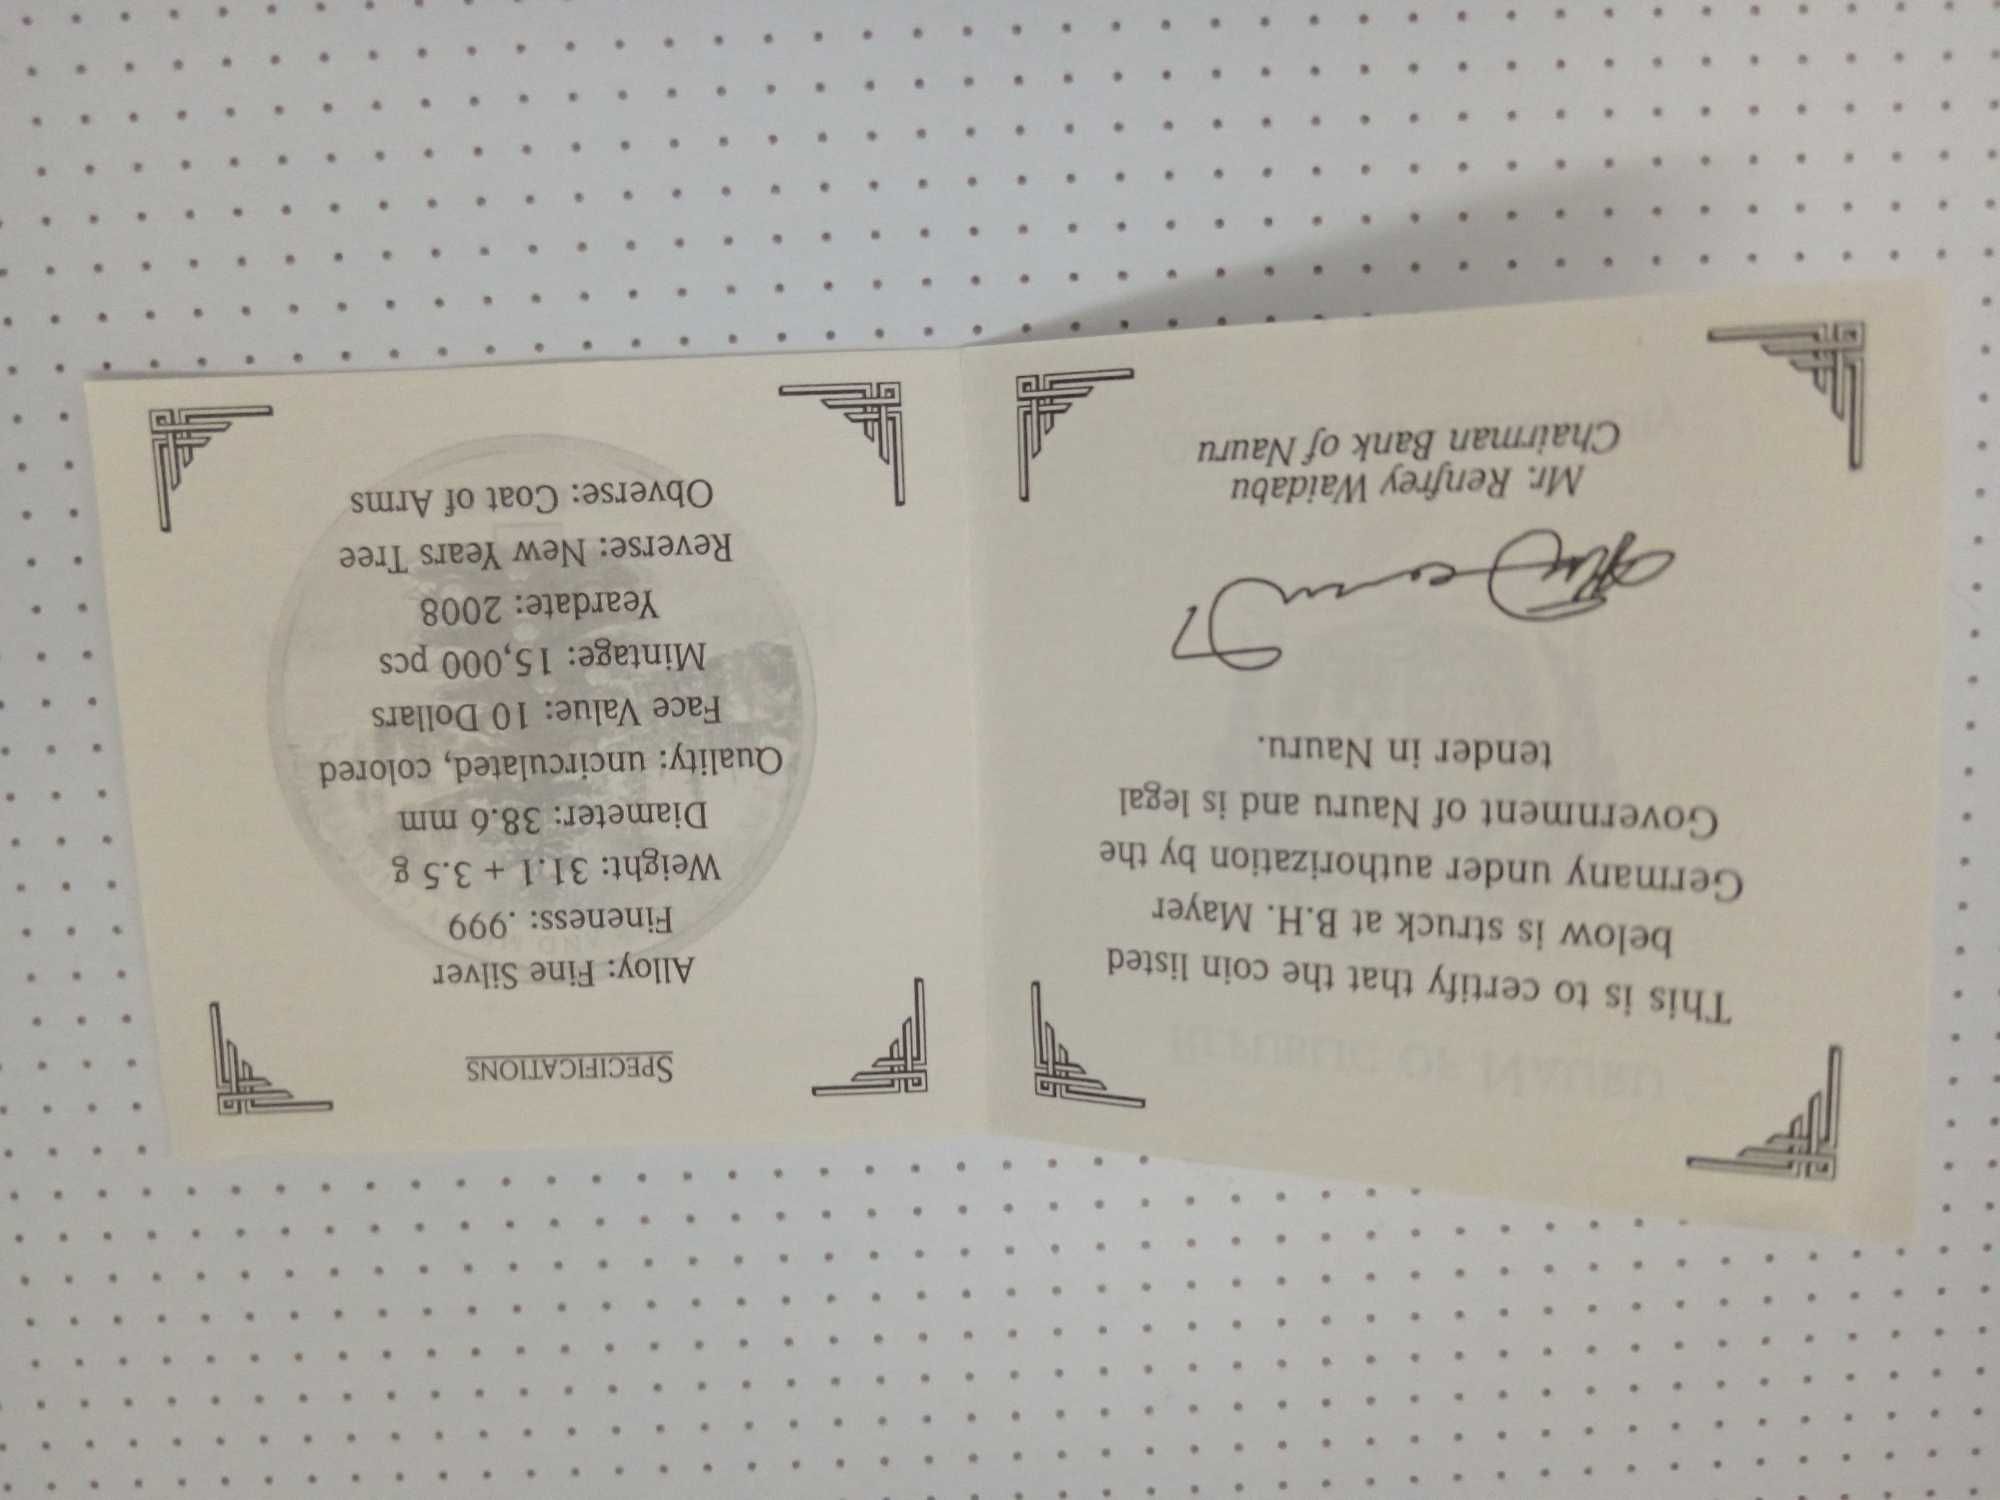 This is to certify that the coin listed
below is struck at B.H. Mayer
Germany under authorization by the
Government of Nauru and is legal
tender in Nauru.
Mr. Renfrey Waidabu
Chairman Bank of Nauru
SPECIFICATIONS
Alloy: Fine Silver
Fineness: .999
Weight: 31.1 + 3.5 g
Diameter: 38.6 mm
Quality: uncirculated, colored
Face Value: 10 Dollars
Mintage: 15,000 pcs
Yeardate: 2008
Reverse: New Years Tree
Obverse: Coat of Arms
REPUBLIC OF NAURU